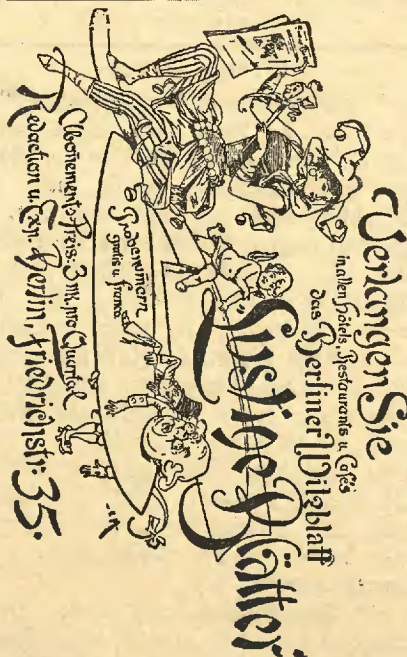 Verlangen Sie
in allen Hotels, Restaurants u. Cafés
das Berliner Witzblatt
Lustige Blätter
Probenummern
gratis u. franco
Abonnements-Preis: 3 Mk. pro Quartal
Redaction u. Exp. Berlin, Friedrichstr. 35.